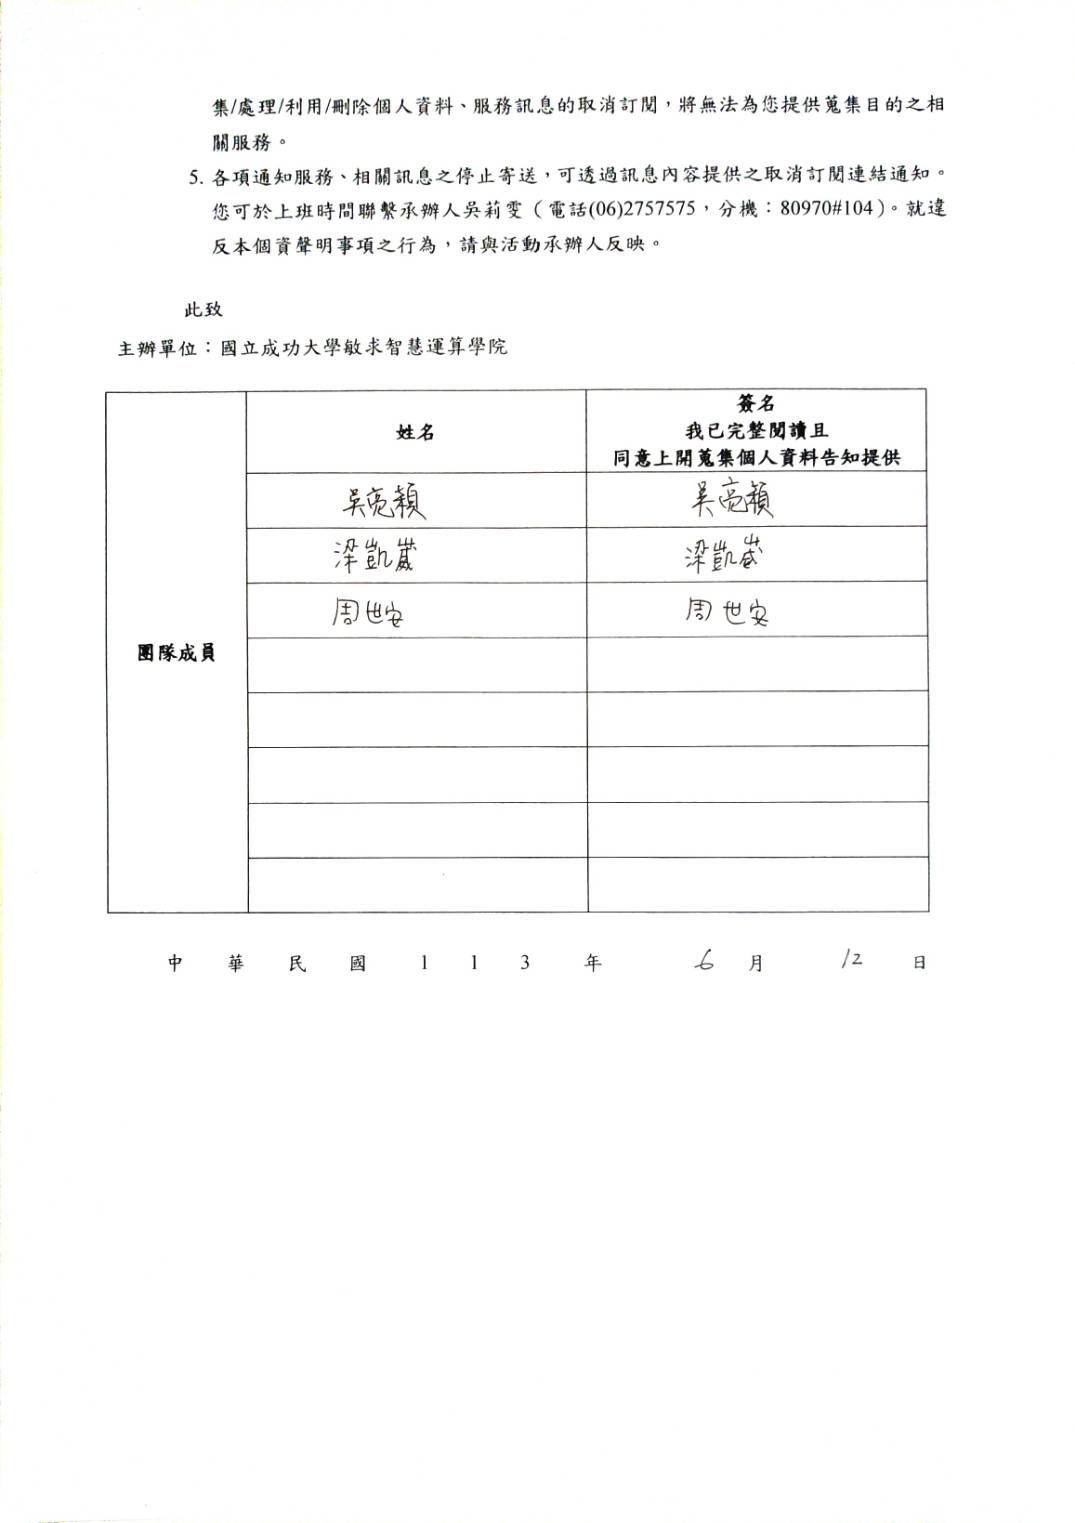 集/處理/利用/刪除個人資料、服務訊息的取消訂閱，將無法為您提供蒐集目的之相
關服務。
5. 各項通知服務、相關訊息之停止寄送，可透過訊息內容提供之取消訂閱連結通知。
您可於上班時間聯繫承辦人吳莉雯（電話(06)2757575，分機：80970#104）。就違
反本個資聲明事項之行為，請與活動承辦人反映。
此致
主辦單位：國立成功大學敏求智慧運算學院
團隊成員
姓名
簽名
我已完整閱讀且
同意上開蒐集個人資料告知提供
吳亮穎 吳亮穎
梁凱崴 梁凱崴
周世安 周世安
中華民國113年 6月 12日